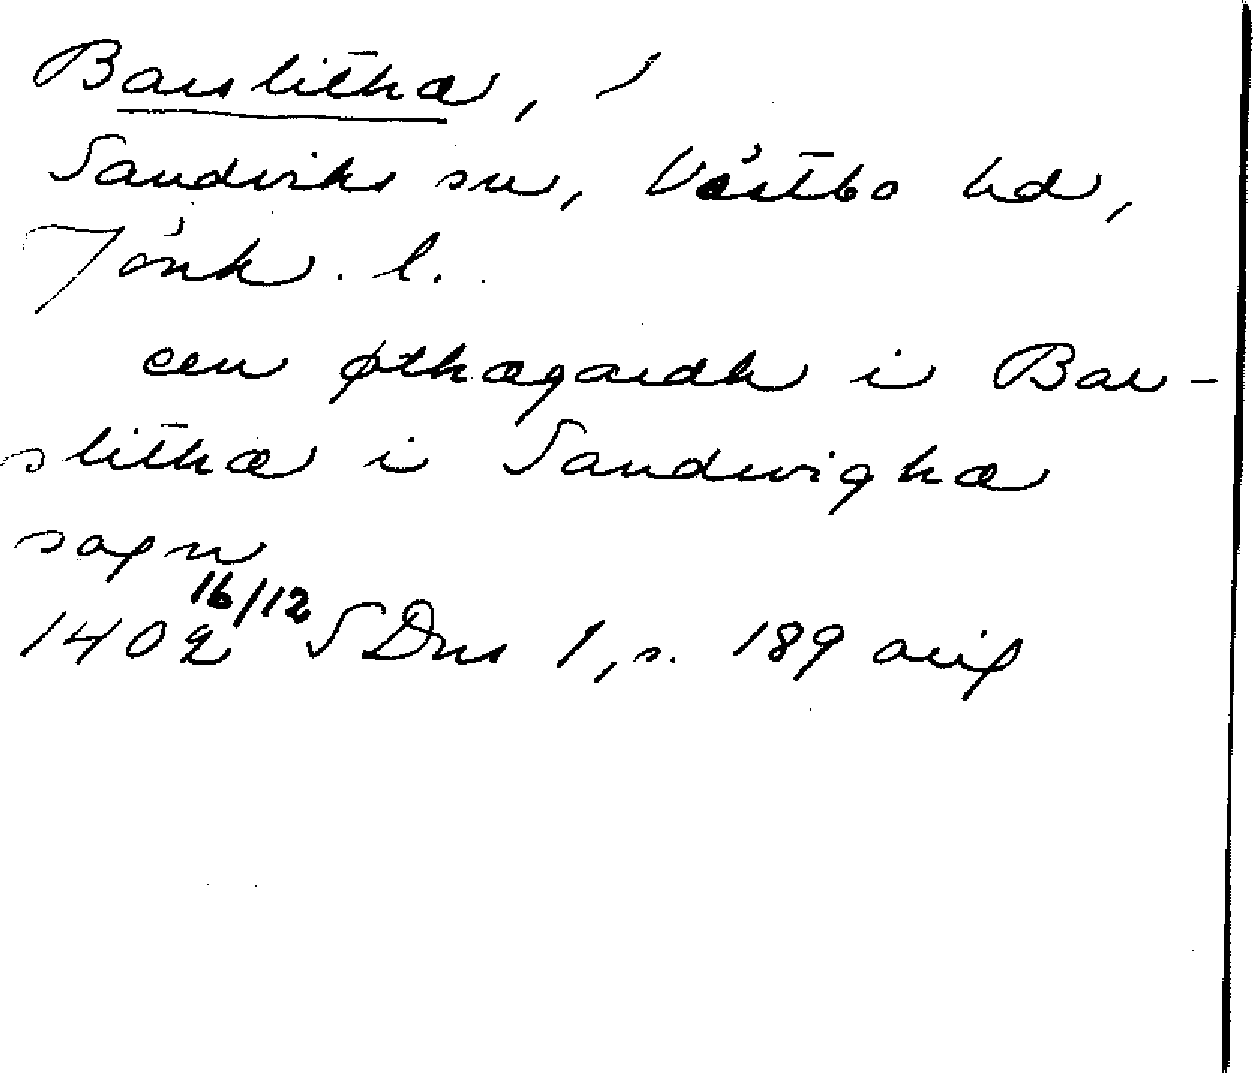 Barslithæ,
Sandviks sn, Västbo hd,
Jönk. l.
een øthægardh i Bar-
slithæ i Sandwighæ
sogn
1402 16/12 SDns 1, s. 189 avig